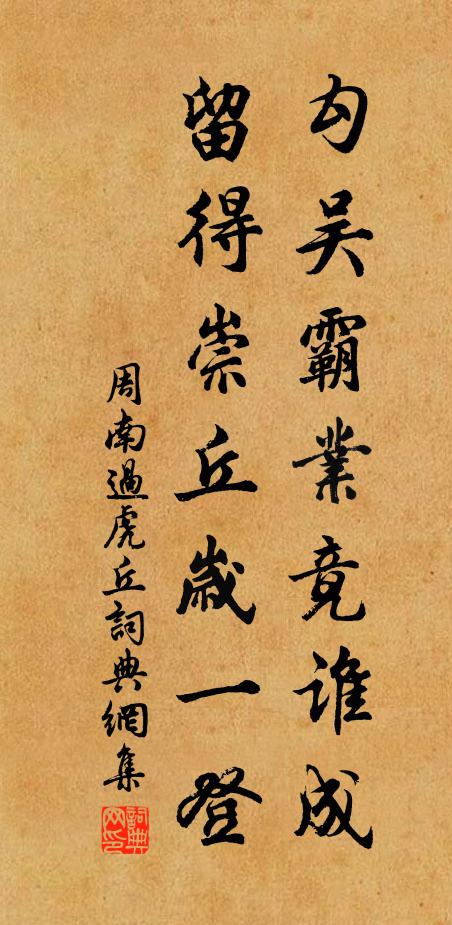 勾吴霸業竟誰成
留得崇丘歲一登
周南過虎丘詞典網集
詞典網印